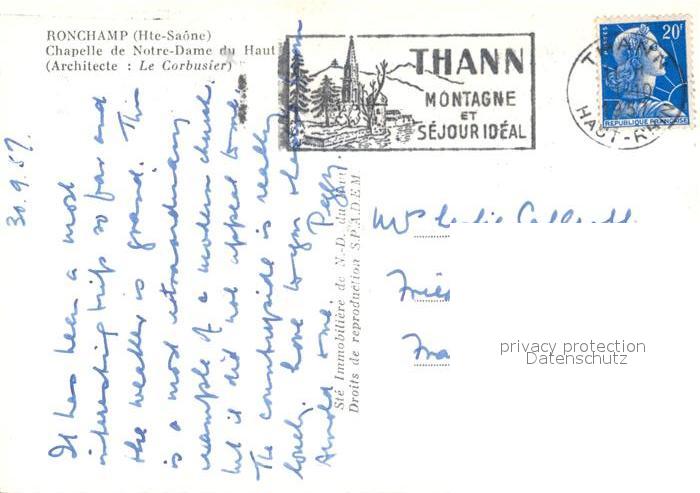 RONCHAMP (Hte-Saône)
Chapelle de Notre-Dame du Haut
(Architecte : Le Corbusier)
THANN
MONTAGNE
ET
SÉJOUR IDÉAL
THANN
HAUT-RHIN
POSTES
20F
REPUBLIQUE FRANÇAISE
30.9.57.
It has been a most
interesting trip so far and
the weather is grand. This
is a most extraordinary
example of a modern church
but it did not appeal to me.
The countryside is really
lovely. Love to you there from
Arnold & me. Peggy.
Sté Immobilière de N.-D. du Haut
Droits de reproduction S.P.A.D.E.M
Mrs Leslie
privacy protection
Datenschutz